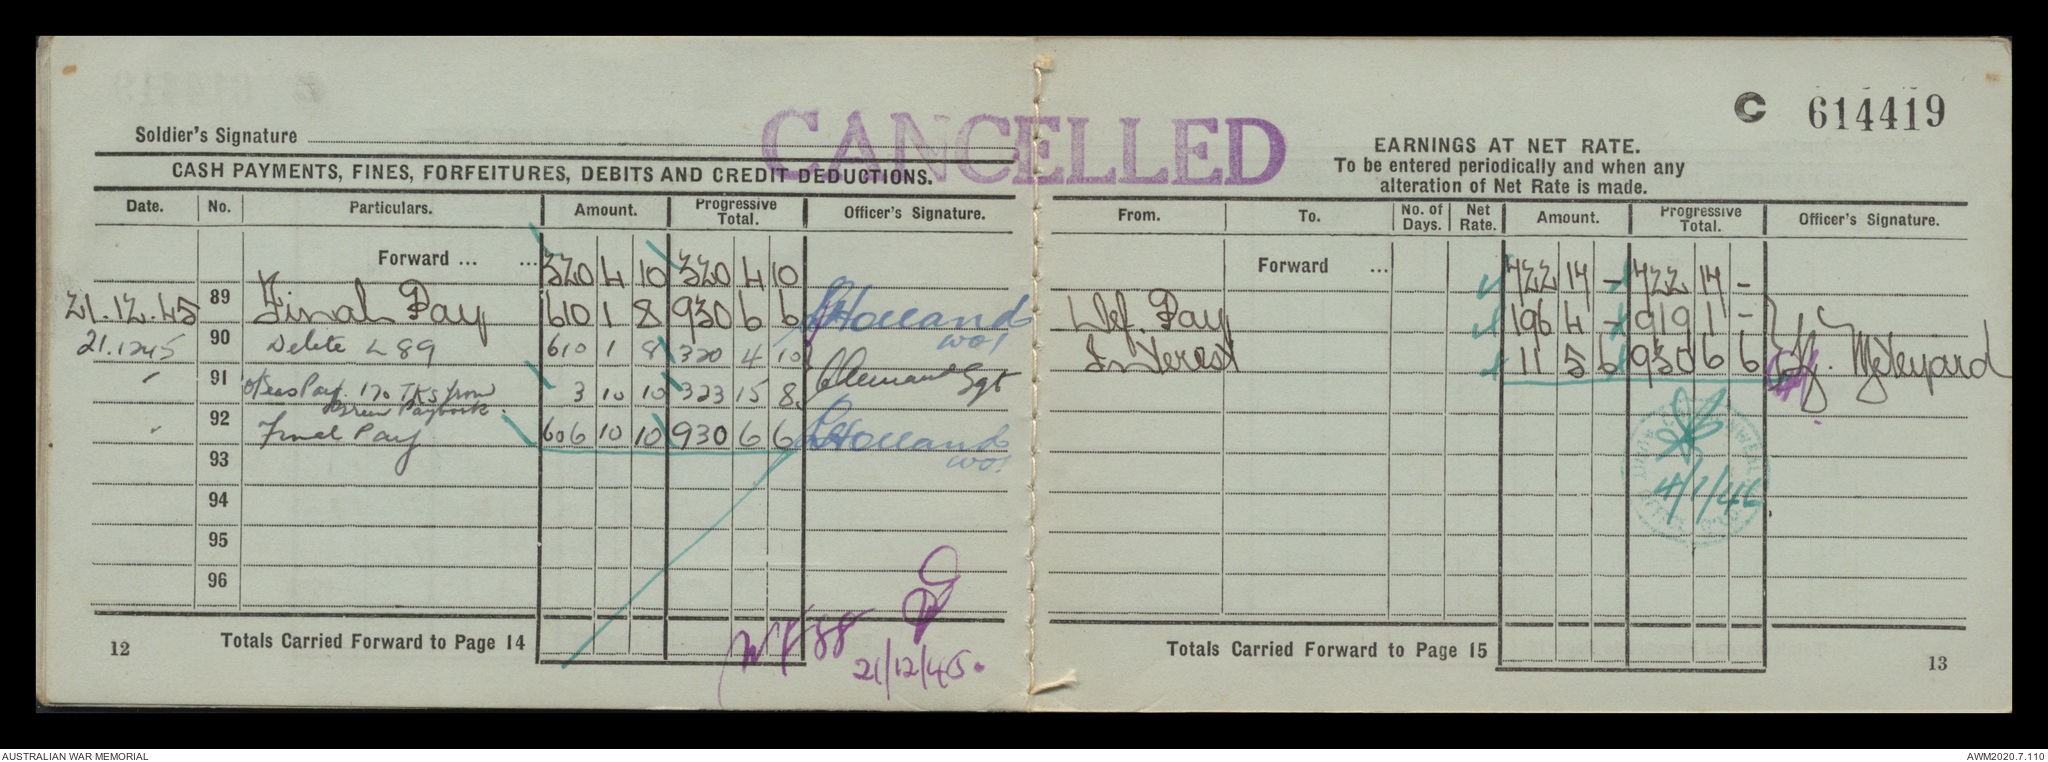 C 614419
CANCELLED
Soldier's Signature
CASH PAYMENTS, FINES, FORFEITURES, DEBITS AND CREDIT DEDUCTIONS.
Date. No. Particulars. Amount. Progressive Total. Officer's Signature.
Forward ... ... 320 4 10 320 4 10
21.12.45 89 Final Pay 610 1 8 930 6 6 Holland WO1
21.12.45 90 Delete L 89 610 1 8 320 4 10
" 91 O/seas Pay. 170 from 3 10 10 323 15 8 Sgt
Paybook.
" 92 Final Pay 606 10 10 930 6 6 Holland WO1
93
94
95
96
12 Totals Carried Forward to Page 14
21/12/45.
EARNINGS AT NET RATE.
To be entered periodically and when any
alteration of Net Rate is made.
From. To. No. of Days. Net Rate. Amount. Progressive Total. Officer's Signature.
Forward ... 722 14 - 722 14 -
Def. Pay 196 4 - 919 1 -
Interest 11 5 6 930 6 6
4/1/46
Totals Carried Forward to Page 15
13
AUSTRALIAN WAR MEMORIAL
AWM2020.7.110